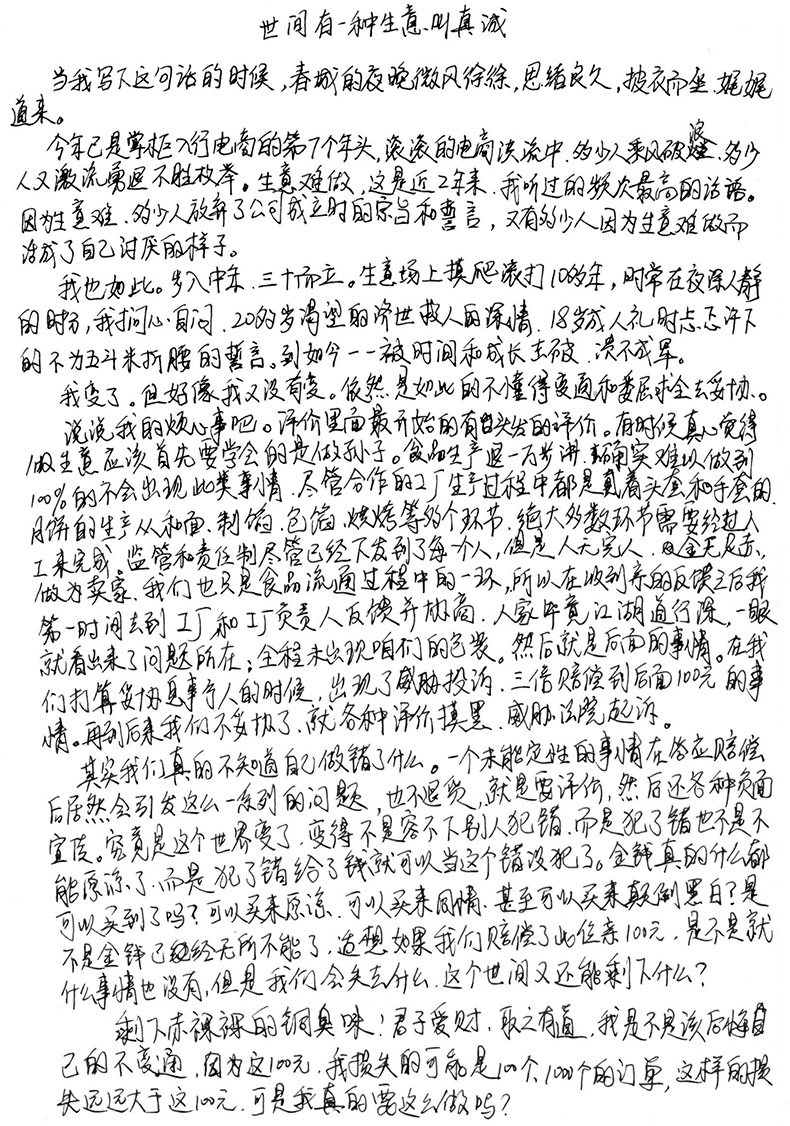 世间有一种生意叫真诚
当我写下这句话的时候，春城的夜晚微风徐徐，思绪良久，披衣而坐，娓娓
道来。
今年已是掌柜入行电商的第7个年头，滚滚的电商洪流中，多少人乘风破浪，多少
人又激流勇退不胜枚举。生意难做，这是近2年来，我听过的频次最高的话语。
因为生意难，多少人放弃了公司成立时的宗旨和誓言，又有多少人因为生意难做而
活成了自己讨厌的样子。
我也如此。步入中年，三十而立。生意场上摸爬滚打10多年，时常在夜深人静
的时分，我扪心自问，20多岁渴望的济世救人的深情，18岁成人礼时忐忑许下
的不为五斗米折腰的誓言。到如今一一被时间和成长击破，溃不成军。
我变了。但好像我又没有变。依然是如此的不懂得变通和委屈求全去妥协。
说说我的烦心事吧。评价里面最开始的有头发的评价。有时候真心觉得
做生意应该首先要学会的是做孙子。食品生产退一万步讲，确实难以做到
100%的不会出现此类事情，尽管合作的工厂生产过程中都是戴着头套和手套的，
月饼的生产从和面、制馅、包馅、烘烤等多个环节，绝大多数环节需要经过人
工来完成。监管和责任制尽管已经下发到了每个人，但是人无完人，金无足赤，
做为卖家，我们也只是食品流通过程中的一环，所以在收到亲的反馈之后我
第一时间去到工厂和工厂负责人反馈并协商，人家毕竟江湖道行深，一眼
就看出来了问题所在；全程未出现咱们的包装。然后就是后面的事情。在我
们打算妥协息事宁人的时候，出现了威胁投诉，三倍赔偿到后面100元的事
情。再到后来我们不妥协了，就各种评价摸黑，威胁法院起诉。
其实我们真的不知道自己做错了什么。一个未能定性的事情在答应赔偿
后居然会引发这么一系列的问题，也不退货，就是要评价，然后还各种负面
宣传。究竟是这个世界变了，变得不是容不下别人犯错，而是犯了错也不是不
能原谅了，而是犯了错给了钱就可以当这个错没犯了。金钱真的什么都
可以买到了吗？可以买来原谅，可以买来同情，甚至可以买来颠倒黑白？是
不是金钱已经无所不能了，造想如果我们赔偿了此位亲100元，是不是就
什么事情也没有，但是我们会失去什么，这个世间又还能剩下什么？
剩下赤裸裸的铜臭味！君子爱财，取之有道，我是不是该后悔自
己的不变通，因为这100元，我损失的可能是100个、1000个的订单，这样的损
失远远大于这100元，可是我真的要这么做吗？